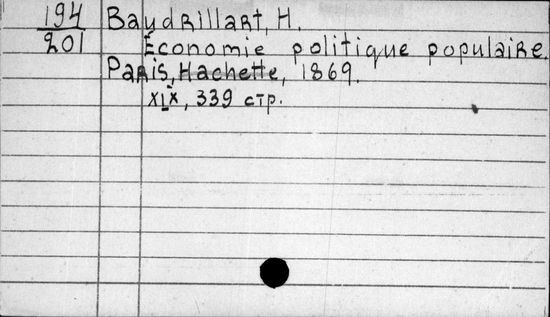 194 Baudrillart, H.
201 Économie politique populaire.
Paris, Hachette, 1869.
XIX, 339 стр.